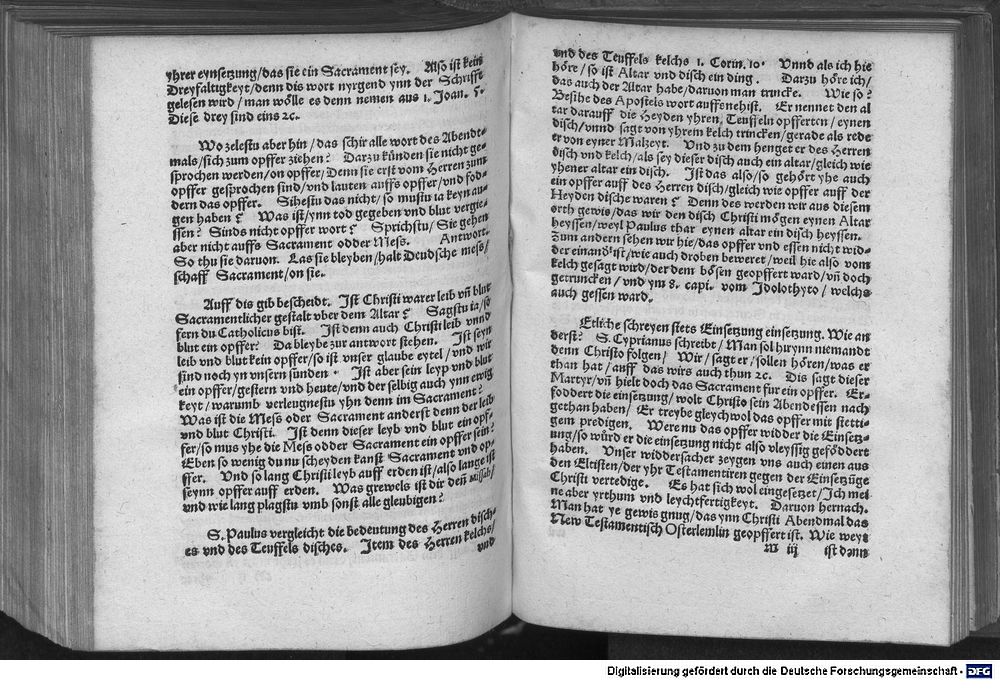 yhrer eynsetzung/das sie ein Sacrament sey. Also ist kein
Dreyfaltigkeyt/denn dis wort nyrgend ynn der Schrifft
gelesen wird/man wölle es denn nemen aus 1. Joan. 5.
Diese drey sind eins ꝛc.
Wo zelestu aber hin/das schir alle wort des Abendt-
mals/sich zum opffer ziehen? Darzu künden sie nicht ge-
sprochen werden/on opffer/Denn sie erst vom Herren zum
opffer gesprochen sind/vnd lauten auffs opffer/vnd fod-
dern das opffer. Sihestu das nicht/so mustu ia keyn au-
gen haben? Was ist/ynn tod gegeben vnd blut vergie-
ssen? Sinds nicht opffer wort? Sprichstu/Sie gehen
aber nicht auffs Sacrament odder Mess. Antwort.
So thu sie daruon. Las sie bleyben/halt Deudsche mess/
schaff Sacrament/on sie.
Auff dis gib bescheidt. Ist Christi warer leib vñ blut
Sacramentlicher gestalt vber dem Altar? Sagstu ia/so
fern du Catholicus bist. Ist denn auch Christi leib vnnd
blut ein opffer? Da bleybe zur antwort stehen. Ist seyn
leib vnd blut kein opffer/so ist vnser glaube eytel/vnd wir
sind noch yn vnsern sunden. Ist aber sein leyp vnd blut
ein opffer/gestern vnd heute/vnd der selbig auch ynn ewig
keyt/warumb verleugnestu yhn denn im Sacrament?
Was ist die Mess oder Sacrament anderst denn der leib
vnd blut Christi. Ist denn dieser leyb vnd blut ein opf-
fer/so mus yhe die Mess odder Sacrament ein opffer sein?
Eben so wenig du nu scheyden kanst Sacrament vnd op-
ffer. Vnd so lang Christi leyb auff erden ist/also lange ist
seynn opffer auff erden. Was grewels ist dir deñ Missab/
vnd wie lang plagstu vmb sonst alle gleubigen?
S. Paulus vergleicht die bedeutung des Herren disch-
es vnd des Teuffels disches. Item des Herren kelchs/
vnd
vnd des Teuffels kelchs 1. Corin. 10. Vnnd als ich hie
höre/so ist Altar vnd disch ein ding. Darzu höre ich/
das auch der Altar habe/daruon man trincke. Wie so?
Besihe des Apostels wort auffenehist. Er nennet den al
tar darauff die Heyden yhren, Teuffeln opfferten/eynen
disch/vnnd sagt von yhrem kelch trincken/gerade als rede
er von eyner Malzeyt. Vnd zu dem henget er des Herren
disch vnd kelch/als sey dieser disch auch ein altar/gleich wie
yhener altar ein disch. Ist das also/so gehört yhe auch
ein opffer auff des Herren disch/gleich wie opffer auff der
Heyden dische waren? Denn des werden wir aus diesem
orth gewis/das wir den disch Christi mögen eynen Altar
heyssen/weyl Paulus thar eynen altar ein disch heyssen.
Zum andern sehen wir hie/das opffer vnd essen nicht wid-
der einand' ist/wie auch droben beweret/weil hie also vom
kelch gesagt wird/der dem bösen geopffert ward/vñ doch
getruncken/vnd ym 8. capi. vom Idolothyto/welchs
auch gessen ward.
Etliche schreyen stets Einsetzung einsetzung. Wie an
derst? S. Cyprianus schreibt/Man sol hirynn niemandt
denn Christo folgen/Wir/sagt er/sollen hören/was er
than hat/auff das wirs auch thun ꝛc. Dis sagt dieser
Martyr/vñ hielt doch das Sacrament für ein opffer. Er-
foddert die einsetzung/wolt Christo sein Abendessen nach
gethan haben/Er treybe gleychwol das opffer mit stetti-
gem predigen. Were nu das opffer widder die Einsetz-
ung/so würd er die einsetzung nicht also vleyssig geföddert
haben. Vnser widdersacher zeygen vns auch einen aus
den Eltisten/der yhr Testamentiren gegen der Einsetzüge
Christi vertedige. Es hat sich wol eingesetzet/Ich mei
ne aber yrthum vnd leychtfertigkeyt. Daruon hernach.
Man hat ye gewis gnug/das ynn Christi Abendmal das
New Testamentisch Osterlemlin geopffert ist. Wie weyt
M iij ist dann
Digitalisierung gefördert durch die Deutsche Forschungsgemeinschaft - DFG